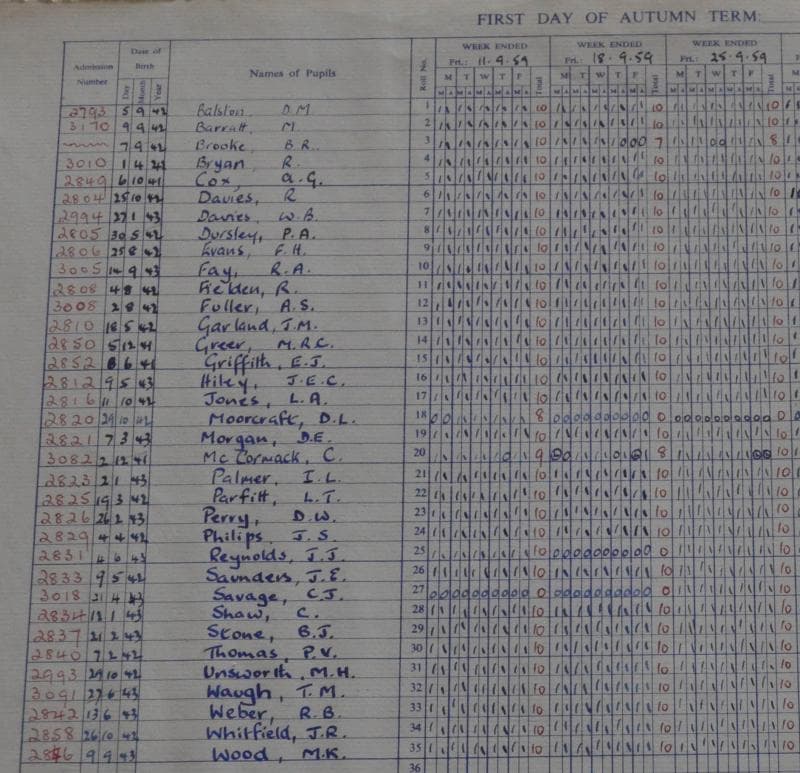 FIRST DAY OF AUTUMN TERM:
WEEK ENDED WEEK ENDED WEEK ENDED
Admission Number Date of Birth Day Month Year Names of Pupils Roll No. Fri.: 11.9.59 Total Fri.: 18.9.59 Total Fri.: 25.9.59 Total
M T W T F M T W T F M T W T F
2793 5 9 42 Balston, D.M. 1 10 10 10
3170 9 9 42 Barratt, M 2 10 10 10
7 9 42 Brooke, B.R. 3 10 7 8
3010 1 4 42 Bryan, R. 4 10 10 10
2849 6 10 41 Cox, A.G. 5 10 10 10
2804 25 10 42 Davies, R 6 10 10 10
2994 27 1 43 Davies, W.B. 7 10 10 10
2805 30 5 42 Dursley, P.A. 8 10 10 10
2806 25 8 42 Evans, F.H. 9 10 10 10
3005 14 9 43 Fay, R.A. 10 10 10 10
2808 4 8 42 Fielden, R. 11 10 10 10
3008 2 8 42 Fuller, A.S. 12 10 10 10
2810 18 5 42 Garland, J.M. 13 10 10 10
2850 5 12 41 Greer, M.R.C. 14 10 10 10
2852 8 6 41 Griffith, E.J. 15 10 10 10
2812 9 5 43 Hiley, J.E.C. 16 10 10 10
2816 11 10 42 Jones, L.A. 17 10 10 10
2820 29 10 42 Moorcraft, D.L. 18 8 0 0
2821 7 3 43 Morgan, D.E. 19 10 10 10
3082 2 12 41 McCormack, C. 20 9 8 10
2823 2 1 43 Palmer, I.L. 21 10 10 10
2825 19 3 42 Parfitt, L.T. 22 10 10 10
2826 26 2 43 Perry, D.W. 23 10 10 10
2829 4 4 42 Philips, J.S. 24 10 10 10
2831 4 6 43 Reynolds, J.J. 25 10 0 10
2833 9 5 42 Saunders, J.E. 26 10 10 10
3018 21 4 43 Savage, C.J. 27 0 0 10
2834 12 1 43 Shaw, C. 28 10 10 10
2837 21 2 43 Stone, B.J. 29 10 10 10
2840 7 2 42 Thomas, P.V. 30 10 10 10
2993 29 10 42 Unsworth, M.H. 31 10 10 10
3091 27 6 43 Waugh, T.M. 32 10 10 10
2842 13 6 43 Weber, R.B. 33 10 10 10
2858 26 10 42 Whitfield, J.R. 34 10 10 10
2846 9 9 43 Wood, M.K. 35 10 10 10
36